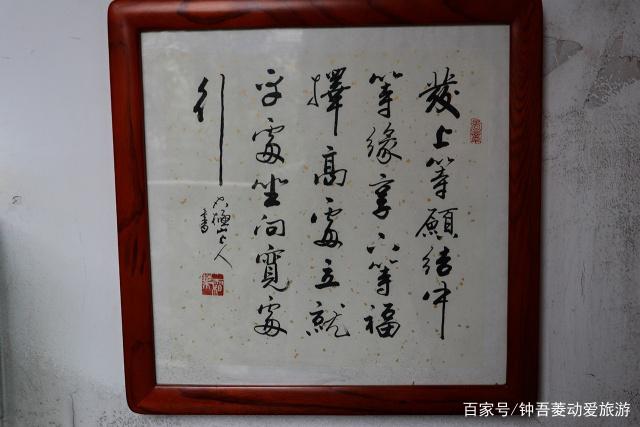 發上等願結中
等緣享下等福
擇高處立就
平處坐向寬處
行
書
百家号/钟吾菱动爱旅游